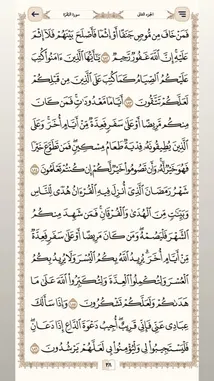 الجزء الثاني
سورة البقرة
فَمَنْ خَافَ مِن مُّوصٍ جَنَفًا أَوْ إِثْمًا فَأَصْلَحَ بَيْنَهُمْ فَلَآ إِثْمَ
عَلَيْهِ إِنَّ ٱللَّهَ غَفُورٌ رَّحِيمٌ ١٨٢ يَٰٓأَيُّهَا ٱلَّذِينَ ءَامَنُوا۟ كُتِبَ
عَلَيْكُمُ ٱلصِّيَامُ كَمَا كُتِبَ عَلَى ٱلَّذِينَ مِن قَبْلِكُمْ
لَعَلَّكُمْ تَتَّقُونَ ١٨٣ أَيَّامًا مَّعْدُودَٰتٍ فَمَن كَانَ
مِنكُم مَّرِيضًا أَوْ عَلَىٰ سَفَرٍ فَعِدَّةٌ مِّنْ أَيَّامٍ أُخَرَ وَعَلَى
ٱلَّذِينَ يُطِيقُونَهُۥ فِدْيَةٌ طَعَامُ مِسْكِينٍ فَمَن تَطَوَّعَ خَيْرًا
فَهُوَ خَيْرٌ لَّهُۥ وَأَن تَصُومُوا۟ خَيْرٌ لَّكُمْ إِن كُنتُمْ تَعْلَمُونَ ١٨٤
شَهْرُ رَمَضَانَ ٱلَّذِىٓ أُنزِلَ فِيهِ ٱلْقُرْءَانُ هُدًى لِّلنَّاسِ
وَبَيِّنَٰتٍ مِّنَ ٱلْهُدَىٰ وَٱلْفُرْقَانِ فَمَن شَهِدَ مِنكُمُ
ٱلشَّهْرَ فَلْيَصُمْهُ وَمَن كَانَ مَرِيضًا أَوْ عَلَىٰ سَفَرٍ فَعِدَّةٌ
مِّنْ أَيَّامٍ أُخَرَ يُرِيدُ ٱللَّهُ بِكُمُ ٱلْيُسْرَ وَلَا يُرِيدُ بِكُمُ
ٱلْعُسْرَ وَلِتُكْمِلُوا۟ ٱلْعِدَّةَ وَلِتُكَبِّرُوا۟ ٱللَّهَ عَلَىٰ مَا
هَدَىٰكُمْ وَلَعَلَّكُمْ تَشْكُرُونَ ١٨٥ وَإِذَا سَأَلَكَ
عِبَادِى عَنِّى فَإِنِّى قَرِيبٌ أُجِيبُ دَعْوَةَ ٱلدَّاعِ إِذَا دَعَانِ
فَلْيَسْتَجِيبُوا۟ لِى وَلْيُؤْمِنُوا۟ بِى لَعَلَّهُمْ يَرْشُدُونَ ١٨٦
٢٨